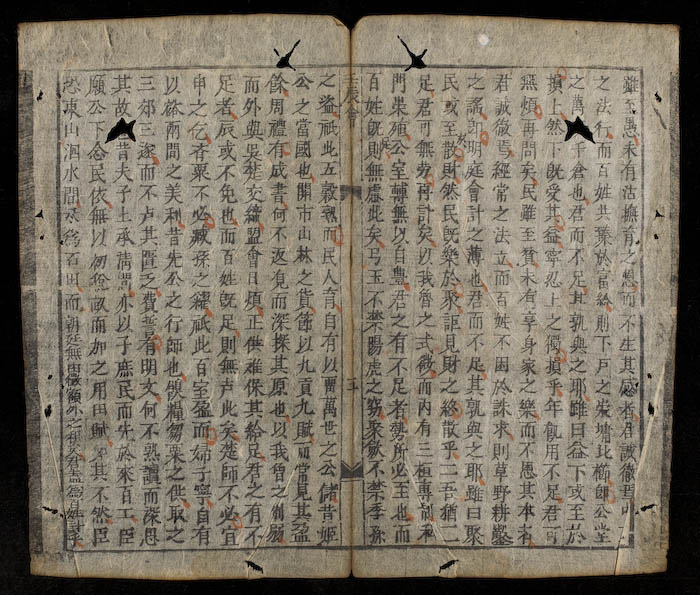 雖至愚未有沾撫育之恩而不生其感者君誠徹焉
之法行而百姓共樂於富給則下戶之崇墉比櫛即公堂
之萬千倉也君而不足其孰與之耶雖曰益下或至於
損上然下既受其益寧忍上之獨損乎年飢用不足君可
無煩再問矣民雖至貧未有享身家之樂而不愚其本者
君誠徹焉經常之法立而百姓不困於誅求則草野耕鑿
之謠即明庭會計之薄也君而不足其孰與之耶雖曰聚
民或至散財然民既樂於聚詎見財之終散乎二吾猶二
足君可無勞再計矣以我魯之式微而內有三桓專制私
門豊殖公室轉無以自豊君之有不足者勢所必至也而
百姓既足則無慮此矣弓玉不禁陽虎之竊聚歛不禁季孫
壬辰會
五
之盜祇此五穀熟而民人育自有以霤萬世之公儲昔姬
公之當國也開市山林之貢餘以九貢九賦而常見其盈
餘周禮有成書何不返覓而深探其原也以我魯之削弱
而外與吳楚交繼盟會日煩正供難保其給足君之有不
足者辰或不免也而百姓既足則無声此矣楚師不必宜
申之乞杏粟不必臧孫之糴祇此百室盈而婦子寧自有
以裕兩間之美利昔先公之行師也餱糧芻茭之供取之
三郊三遂而不声其匱乏費誓有明文何不熟讀而深思
其故 昔夫子上承清問亦以子庶民而先於來百工臣
願公下念民依無以初稅畝而加之用田賦 其不然臣
恐東山泗水間